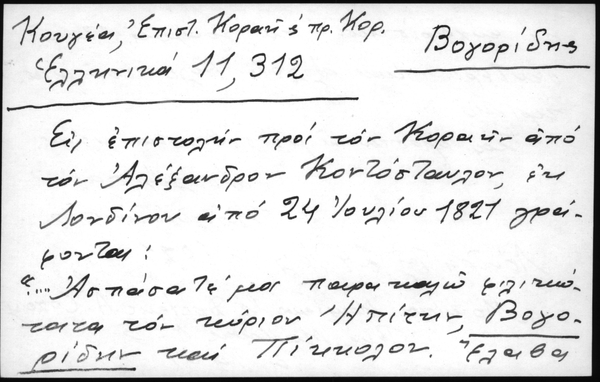 Κουγέα, Ἐπιστ. Κοραῆ & πρ. Κορ.
Βογορίδης
Ἑλληνικά 11, 312
Εἰς ἐπιστολήν πρός τόν Κοραῆν ἀπό
τόν Ἀλέξανδρον Κοντόσταυλον, ἐκ
Λονδίνου ἀπό 24 Ἰουλίου 1821 γρά-
φονται:
"... Ἀσπάσατέ μοι παρακαλῶ φιλικώ-
τατα τόν κύριον Ἠπίτην, Βογο-
ρίδην καί Πίκκολον. Ἔλαβα